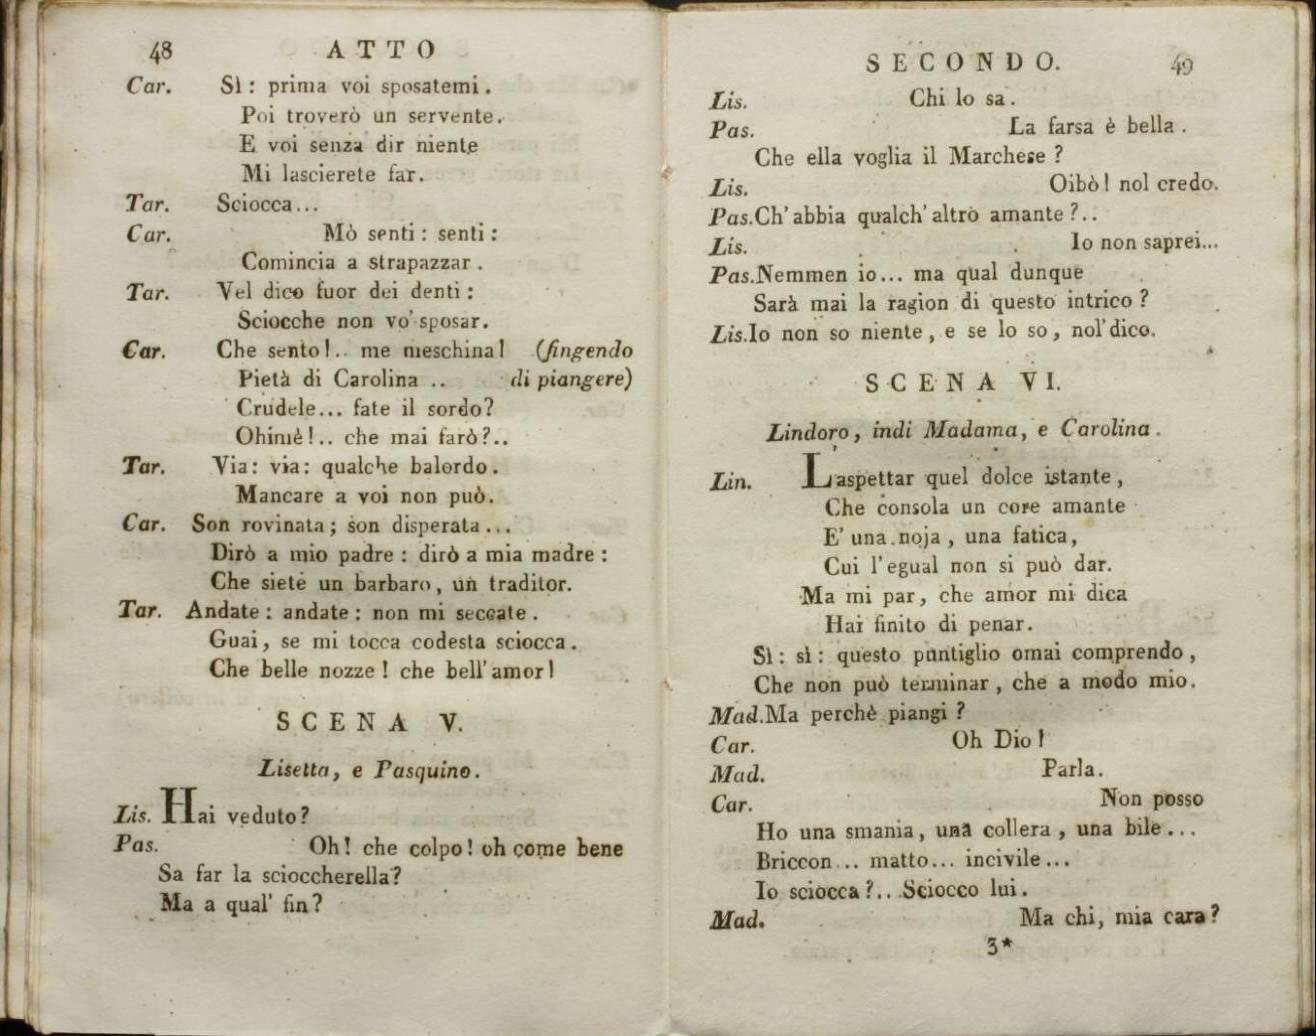 48 ATTO
Car. Sì: prima voi sposatemi.
Poi troverò un servente.
E voi senza dir niente
Mi lascierete far.
Tar. Sciocca...
Car. Mò senti: senti:
Comincia a strapazzar.
Tar. Vel dico fuor dei denti:
Sciocche non vo' sposar.
Car. Che sento!.. me meschina! (fingendo
Pietà di Carolina .. di piangere)
Crudele... fate il sordo?
Ohimè!.. che mai farò?..
Tar. Via: via: qualche balordo.
Mancare a voi non può.
Car. Son rovinata; son disperata...
Dirò a mio padre: dirò a mia madre:
Che siete un barbaro, un traditor.
Tar. Andate: andate: non mi seccate.
Guai, se mi tocca codesta sciocca.
Che belle nozze! che bell'amor!
SCENA V.
Lisetta, e Pasquino.
Lis. Hai veduto?
Pas. Oh! che colpo! oh come bene
Sa far la scioccherella?
Ma a qual' fin?
SECONDO. 49
Lis. Chi lo sa.
Pas. La farsa è bella.
Che ella voglia il Marchese?
Lis. Oibò! nol credo.
Pas. Ch'abbia qualch'altro amante?..
Lis. Io non saprei...
Pas. Nemmen io... ma qual dunque
Sarà mai la ragion di questo intrico?
Lis. Io non so niente, e se lo so, nol dico.
SCENA VI.
Lindoro, indi Madama, e Carolina.
Lin. L'aspettar quel dolce istante,
Che consola un core amante
E' una noja, una fatica,
Cui l'egual non si può dar.
Ma mi par, che amor mi dica
Hai finito di penar.
Sì: sì: questo puntiglio omai comprendo,
Che non può terminar, che a modo mio.
Mad. Ma perchè piangi?
Car. Oh Dio!
Mad. Parla.
Car. Non posso
Ho una smania, una collera, una bile...
Briccon... matto... incivile...
Io sciocca?... Sciocco lui.
Mad. Ma chi, mia cara?
3*